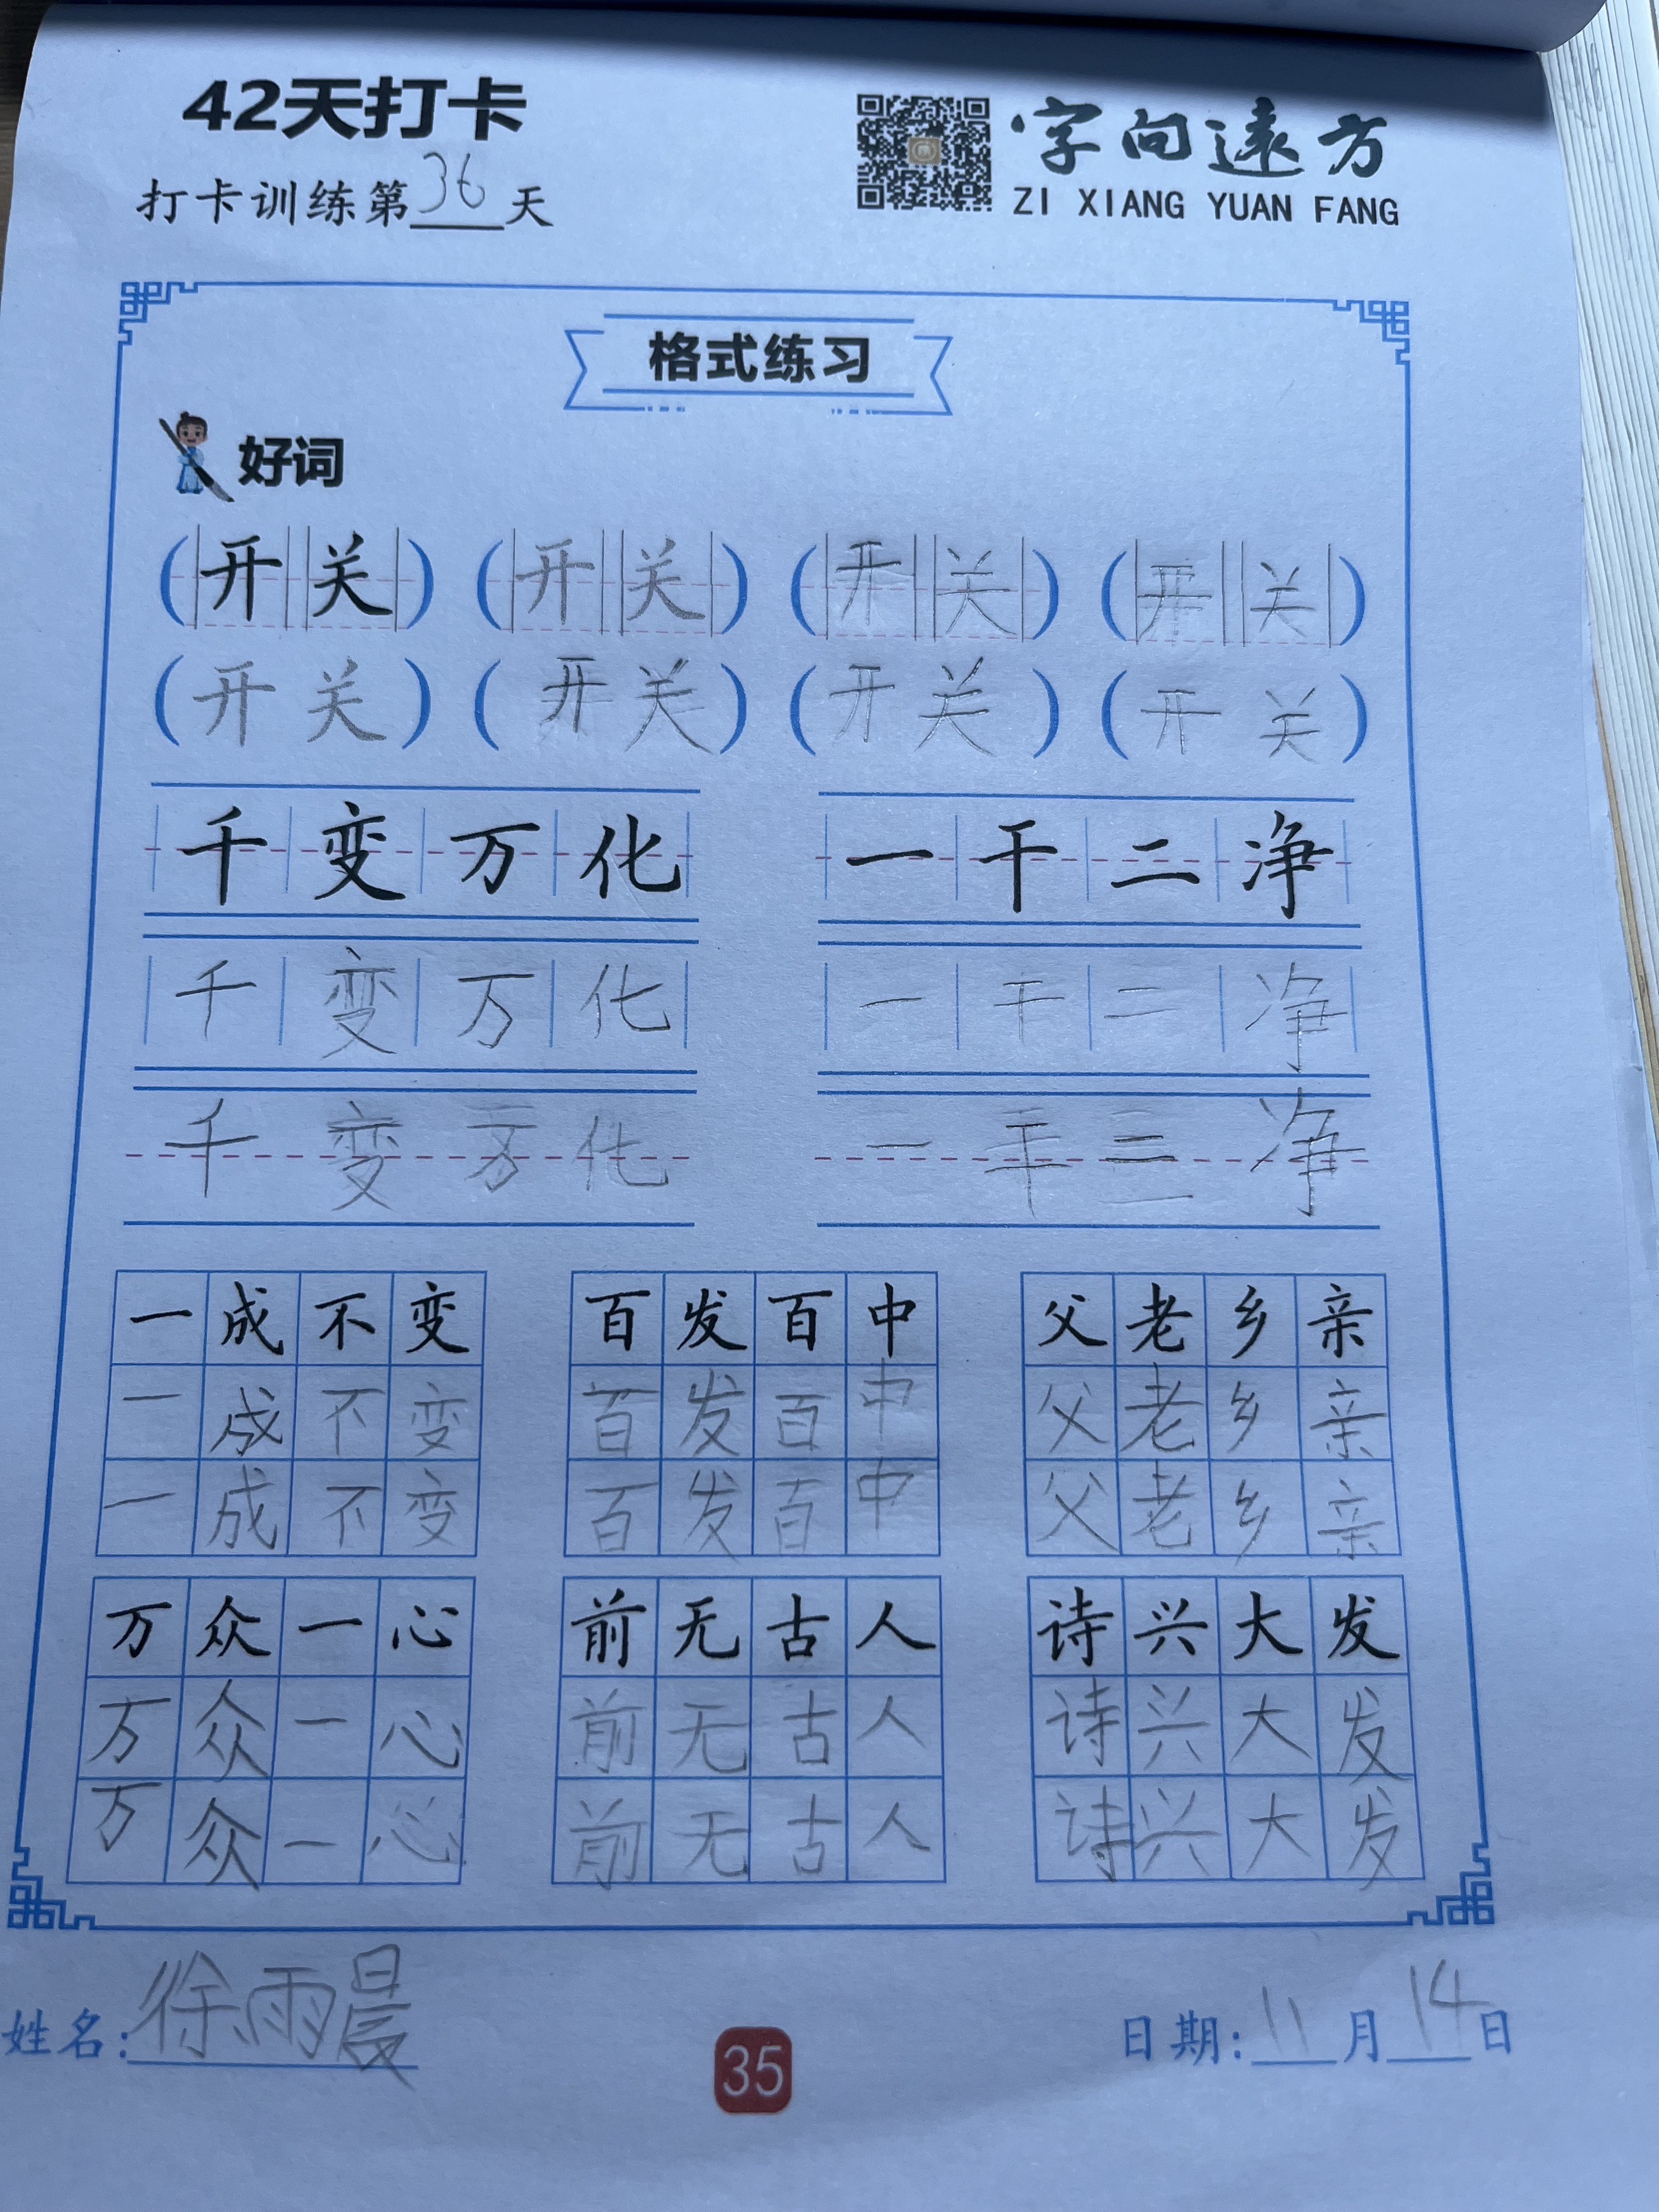 42天打卡
打卡训练第36天
字向遠方
ZI XIANG YUAN FANG
格式练习
好词
(开关) (开关) (开关) (开关)
(开关) (开关) (开关) (开关)
千变万化 一干二净
千变万化 一干二净
千变万化 一干二净
一成不变 百发百中 父老乡亲
一成不变 百发百中 父老乡亲
一成不变 百发百中 父老乡亲
万众一心 前无古人 诗兴大发
万众一心 前无古人 诗兴大发
万众一心 前无古人 诗兴大发
姓名:徐雨晨 35 日期:11月14日